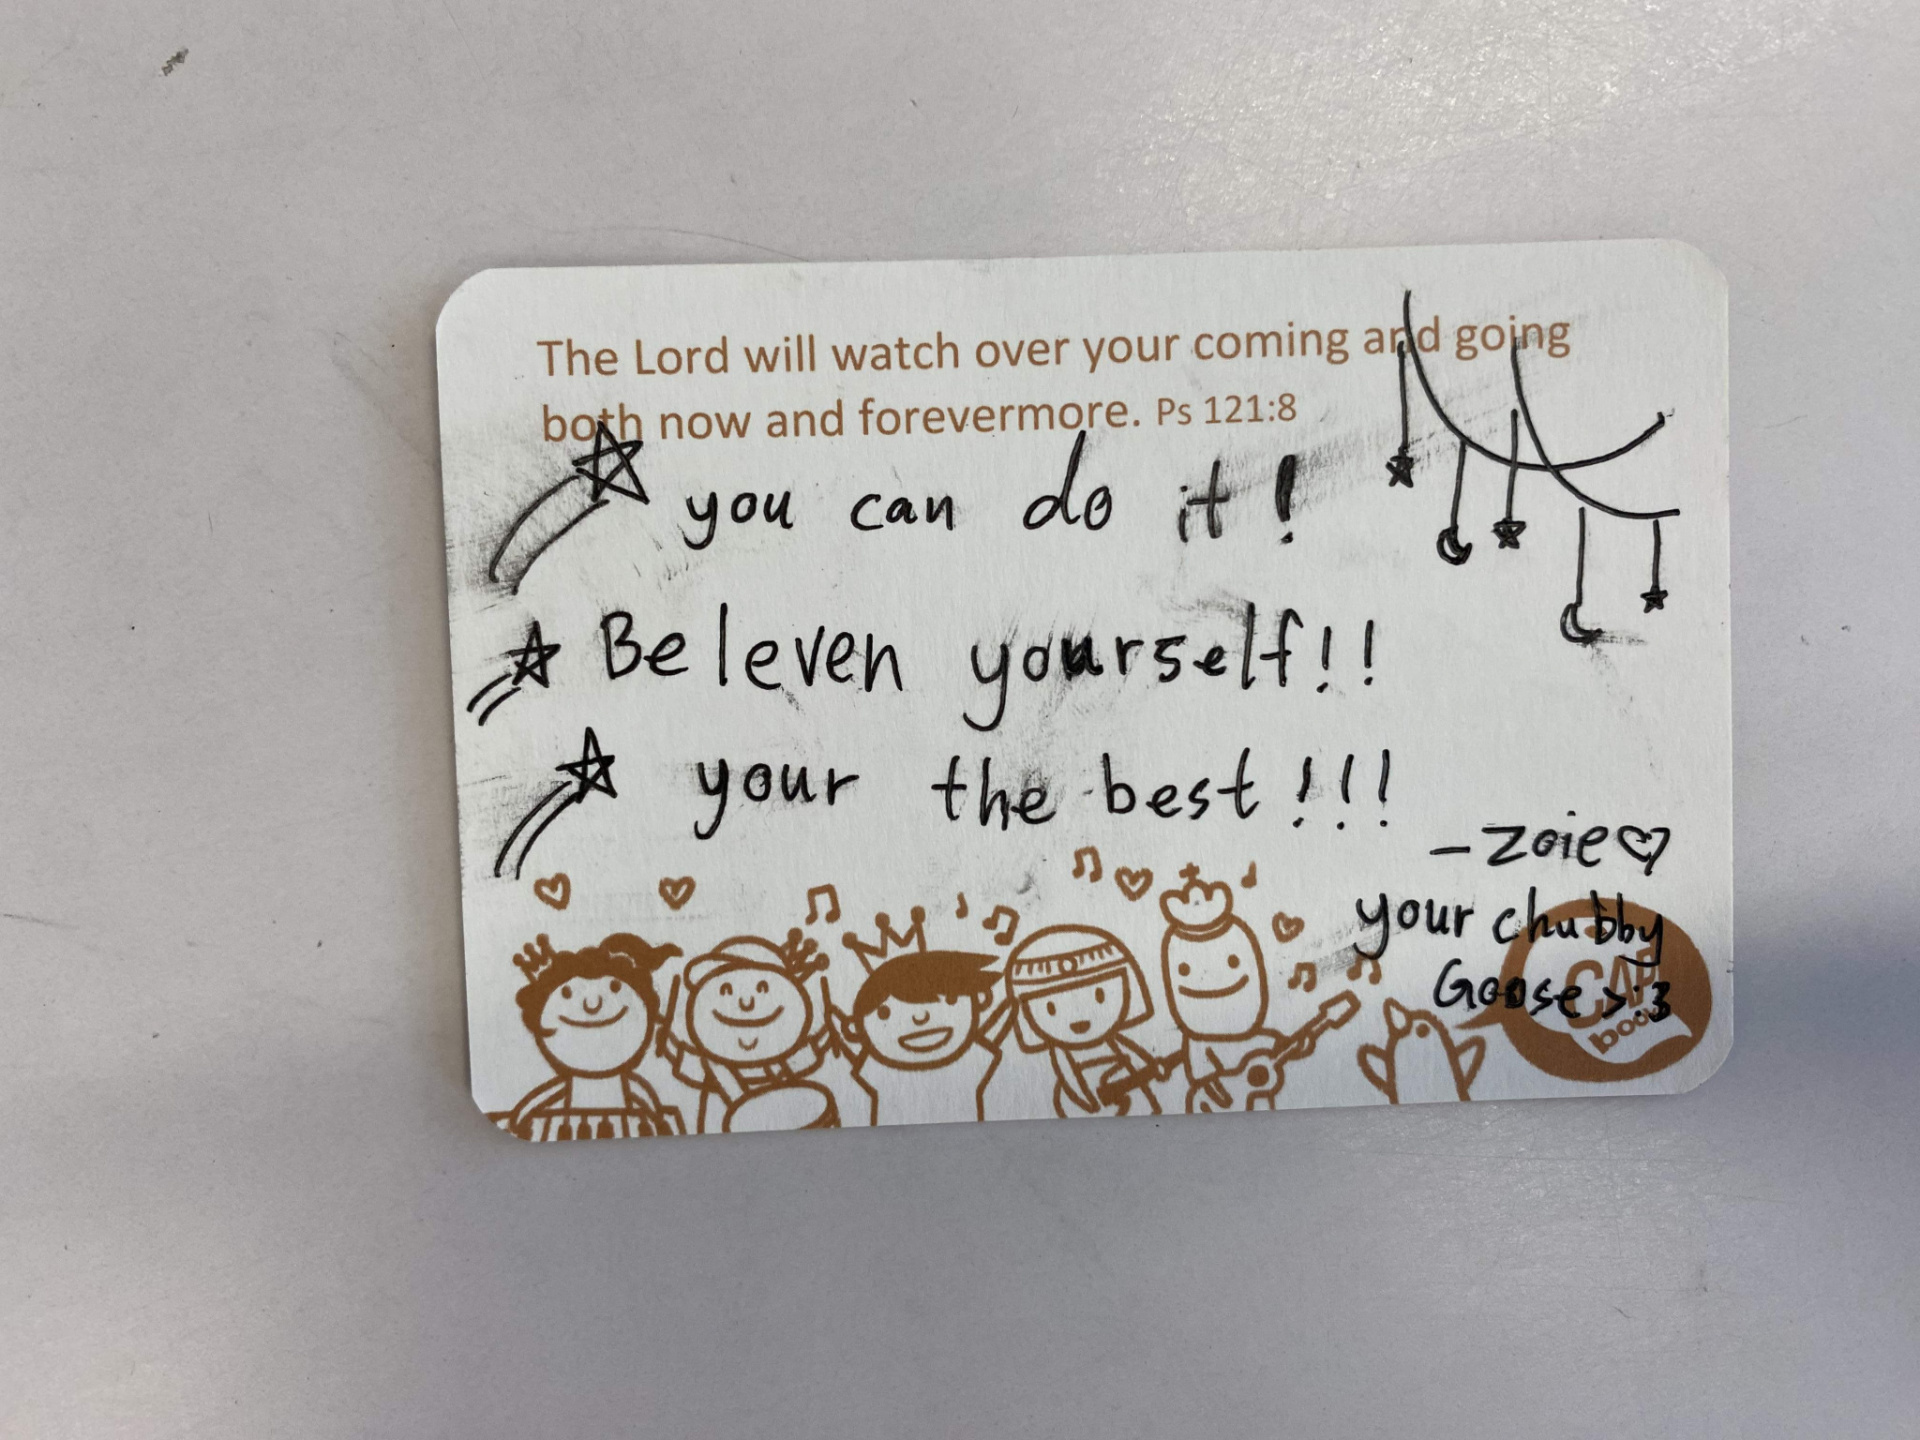 The Lord will watch over your coming and going
both now and forevermore. Ps 121:8
you can do it!
Beleven yourself!!
your the best!!!
- Zoie♡
your chubby
Goose >:3